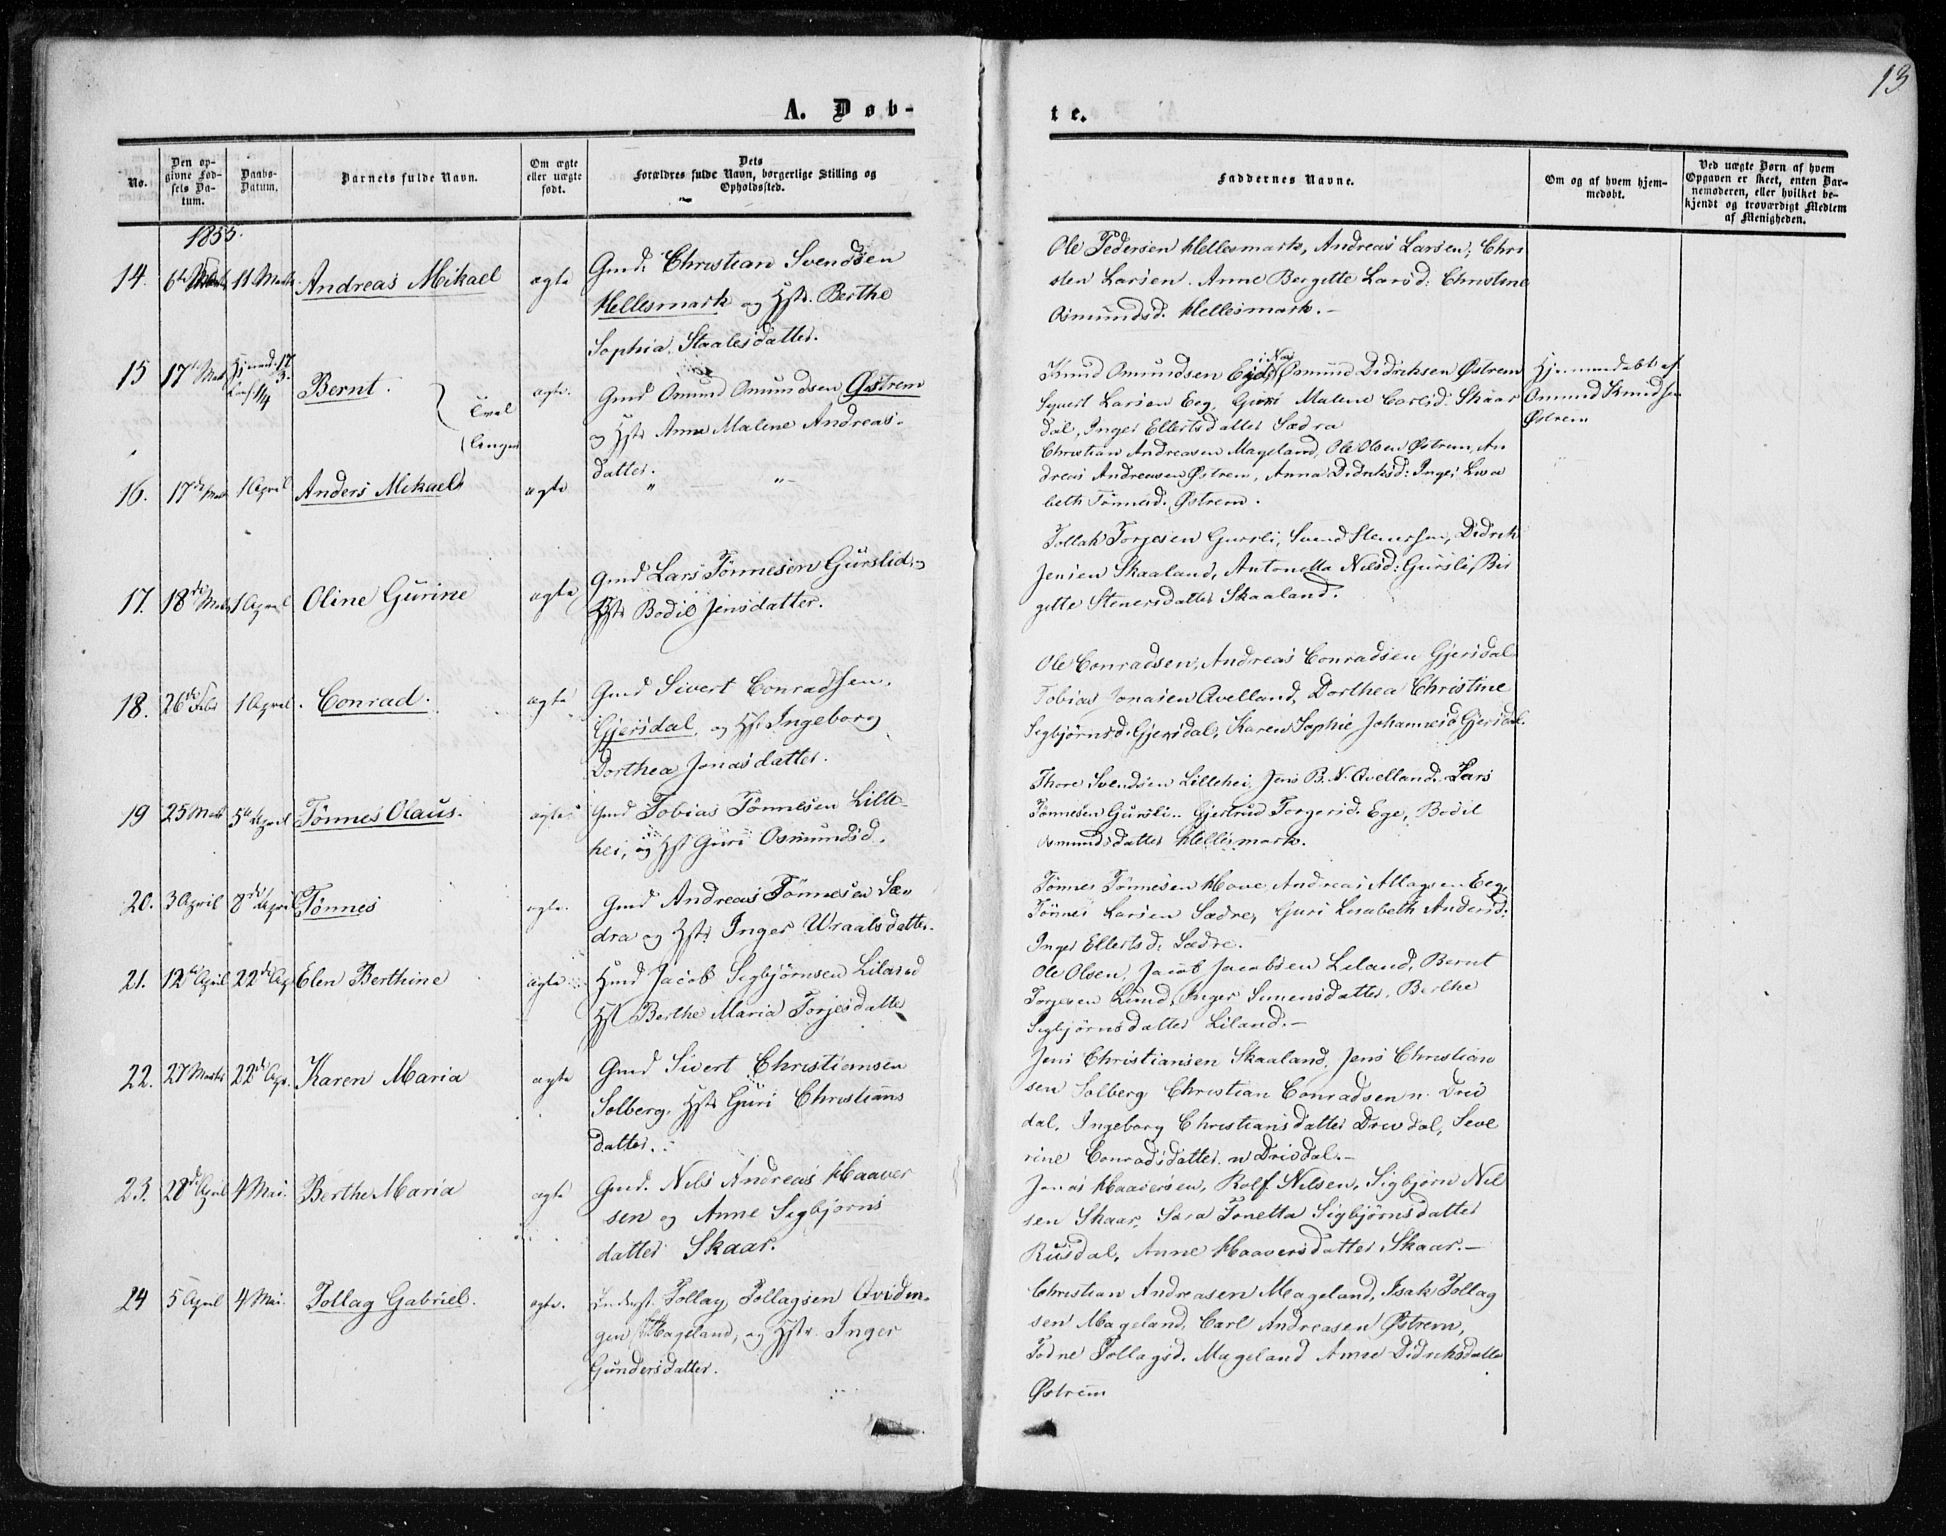 13
A. Døb-
te.
No.
Den op-
givne Fød-
sels Da-
tum.
Daabs-
Datum.
Barnets fulde Navn.
Om ægte
eller uægte
født.
Dets
Forældres fulde Navn, borgerlige Stilling og
Opholdssted.
Faddernes Navne.
Om og af hvem hjem-
medøbt.
Ved uægte Børn af hvem
Opgaven er skeet, enten Bar-
nemoderen, eller hvilket be-
kjendt og troværdigt Medlem
af Menigheden.
1855.
14. 6te 11 Marts Andreas Mikael ægte
Gmd. Christian Svendsen
Hellesmark og Hstr. Berthe
Sophia Staalesdatter.
Ole Pedersen Hellesmark, Andreas Larsen, Chri
sten Larsen. Anne Bergitte Larsd: Christine
Osmundsd. Hellesmark. –
15 17de Mart Hjemmed. 17/3. 1/4 Bernt. ægte.
Tvil
linger
Gmd Omund Omundsen Østrem
og Hstr Anna Malene Andreas-
datter.
Knud Omundsen Omund Didriksen Østrem
Syvert Larsen Eeg, Guri Malene Carlsd. Skaar
dal, Inger Ellertsdatter Sædra
Hjemmedøbt af
Omund Knudsen
Østrem
16. 17de Mart 1 April Anders Mikael ægte
" "
Christian Andreasen Mageland, Ole Olsen Østrem, An
dreas Andreasen Østrem, Anna Didriksd: Inger Lisa
beth Tønnesd. Østrem.
17. 18de Marts 1 April Oline Gurine ægte
Gmd Lars Tønnesen Gursli og
Hstr Bodil Jensdatter.
Tollak Torjesen Gursli, Svend Stenersen, Didrik
Jensen Skaaland, Antonetta Nilsd: Gursli, Bir
gitte Stenersdatter Skaaland.
18. 26de Febr 1 April Conrad. ægte
Gmd Sivert Conradsen
Gjersdal, og Hstr Ingeborg
Dorthea Jonasdatter.
Ole Conradsen, Andreas Conradsen Gjersdal
Tobias Jonasen Qvelland, Dorthea Christine
Sigbjørnsd. Gjersdal, Karen Sophie Johannesd. Gjersdal.
19 25 Marts 5te April Tønnes Olaus. ægte
Gmd Tobias Tønnesen Lille-
hei, og Hst Guri Osmundsd.
Thore Svendsen Lillehei, Jens B. N. Qvelland. Lars
Tønnesen Gursli.. Gjertrud Torgersd: Ege, Bodil
Osmundsdatter Hellesmark.
20. 3 April 8de April Tønnes ægte.
Gmd Andreas Tønnesen Sæ-
dra og Hstr Inger Wraalsdatter.
Tønnes Tønnesen Hove, Andreas Atlagsen Eeg,
Tønnes Larsen Sædre, Guri Lisabeth Andersd:
Inger Ellertsd: Sædre.
21. 12te April 22de Ap Elen Berthine ægte
Hmd Jacob Sigbjørnsen Liland
Hst Berthe Maria Torjesdatter
Ole Olsen, Jacob Jacobsen Liland, Bernt
Torjesen Lund, Inger Simensdatter, Berthe
Sigbjørnsdatter Liland. –
22. 27 Marts 22de Apr. Karen Maria ægte
Gmd Sivert Christiansen
Solberg, Hstr Guri Christians
datter.
Jens Christiansen Skaaland, Jens Christian
sen Solberg Christian Conradsen n. Driv
dal, Ingeborg Christiansdatter Drivdal, Seve
rine Conradsdatter n Drivdal. –
23. 28de April 4 Mai. Berthe Maria ægte
Gmd. Nils Andreas Haaver
sen og Anne Sigbjørns
datter Skaar.
Jonas Haaversen, Rolf Nilsen, Sigbjørn Nil
sen Skaar, Sara Tonetta Sigbjørnsdatter
Rusdal, Anne Haaversdatter Skaar. –
24 5 April 4 Mai. Tollag Gabriel. ægte.
Tollag Tollagsen Qvidin-
gen Mageland, og Hstr. Inger
Gundersdatter.
Christian Andreasen Mageland, Isak Tollag
sen Mageland, Carl Andreasen Østrem,
Todne Tollagsd. Mageland Anne Didriksdatter
Østrem